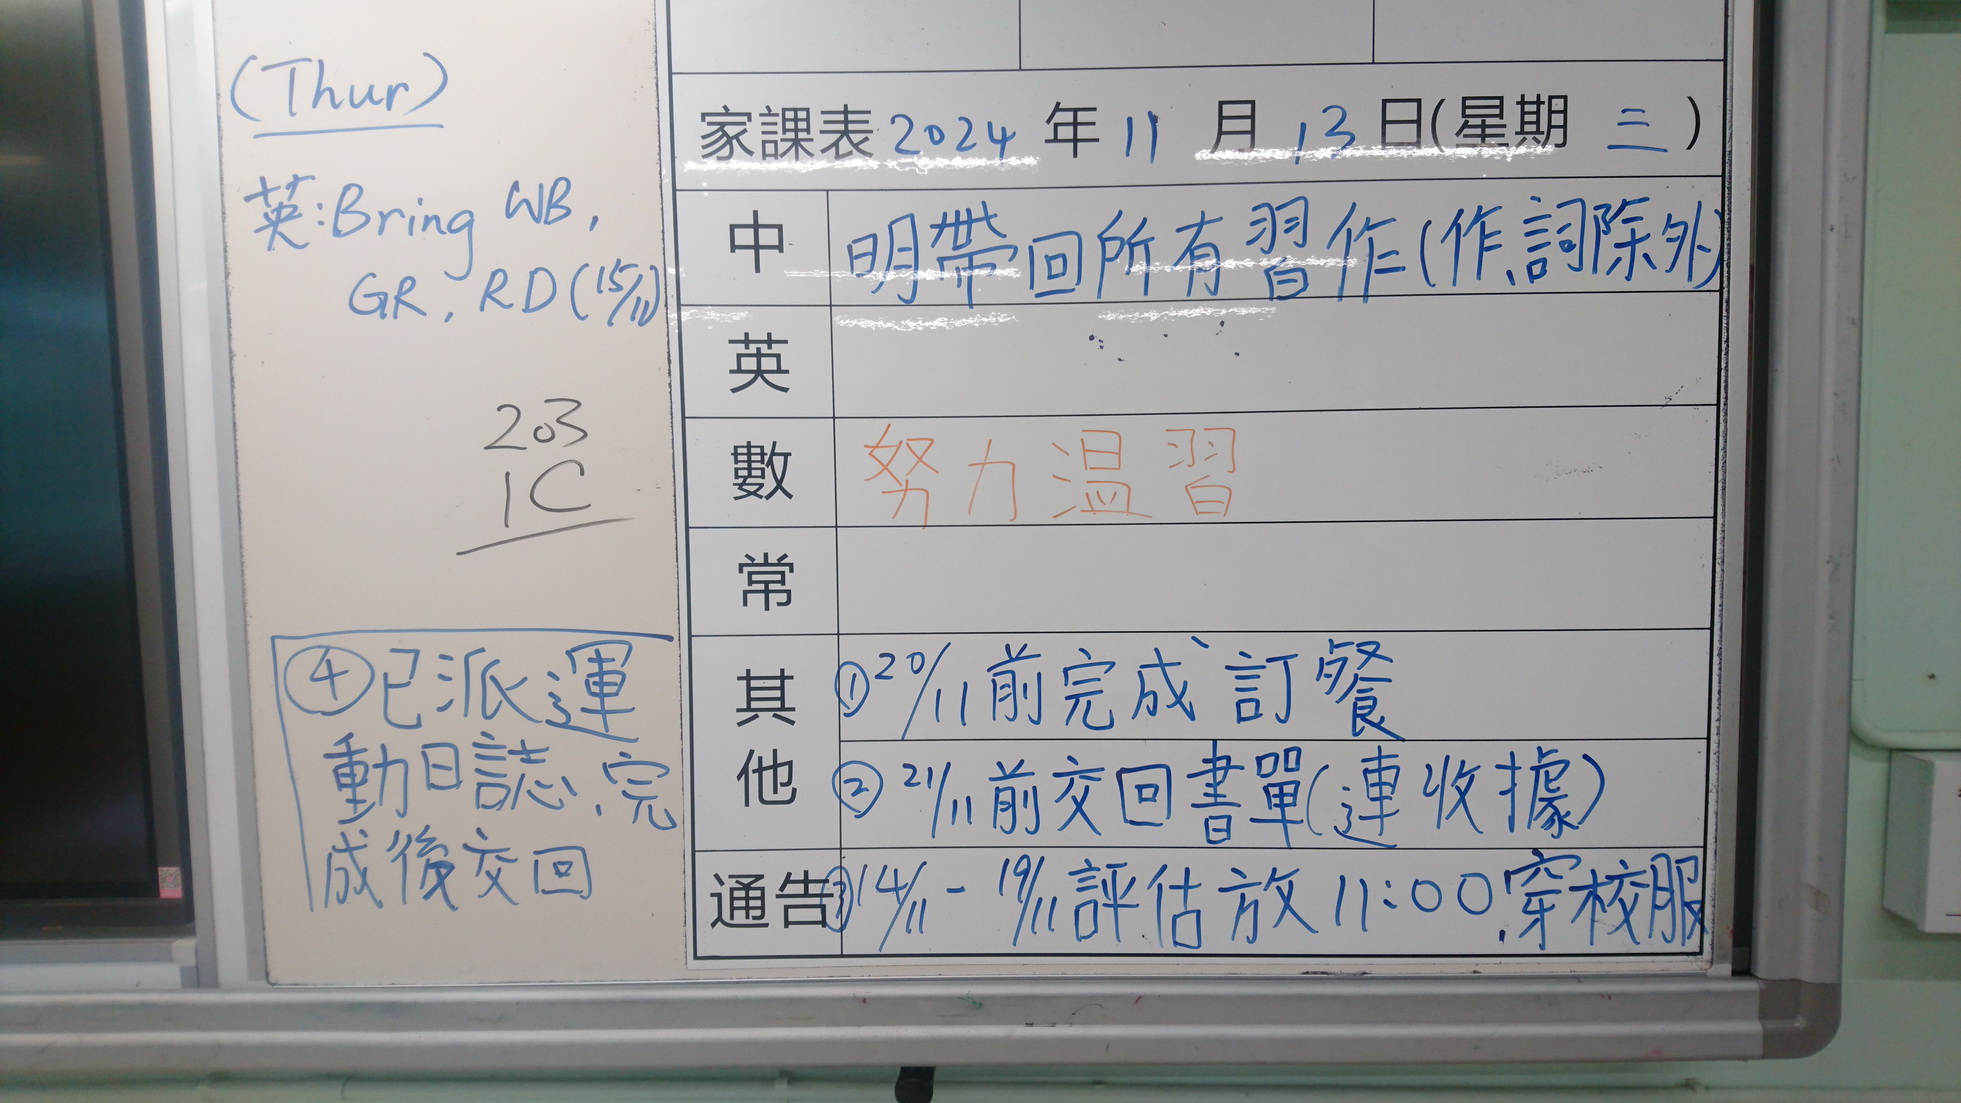 (Thur)
英:Bring WB,
GR, RD(15/11)
203
1C
④已派運
動日誌,完
成後交回
家課表2024年11月13日(星期三)
中 明帶回所有習作(作,詞除外)
英
數 努力溫習
常
其他 ①20/11前完成訂餐
②21/11前交回書單(連收據)
通告 ③14/11-19/11評估放11:00,穿校服